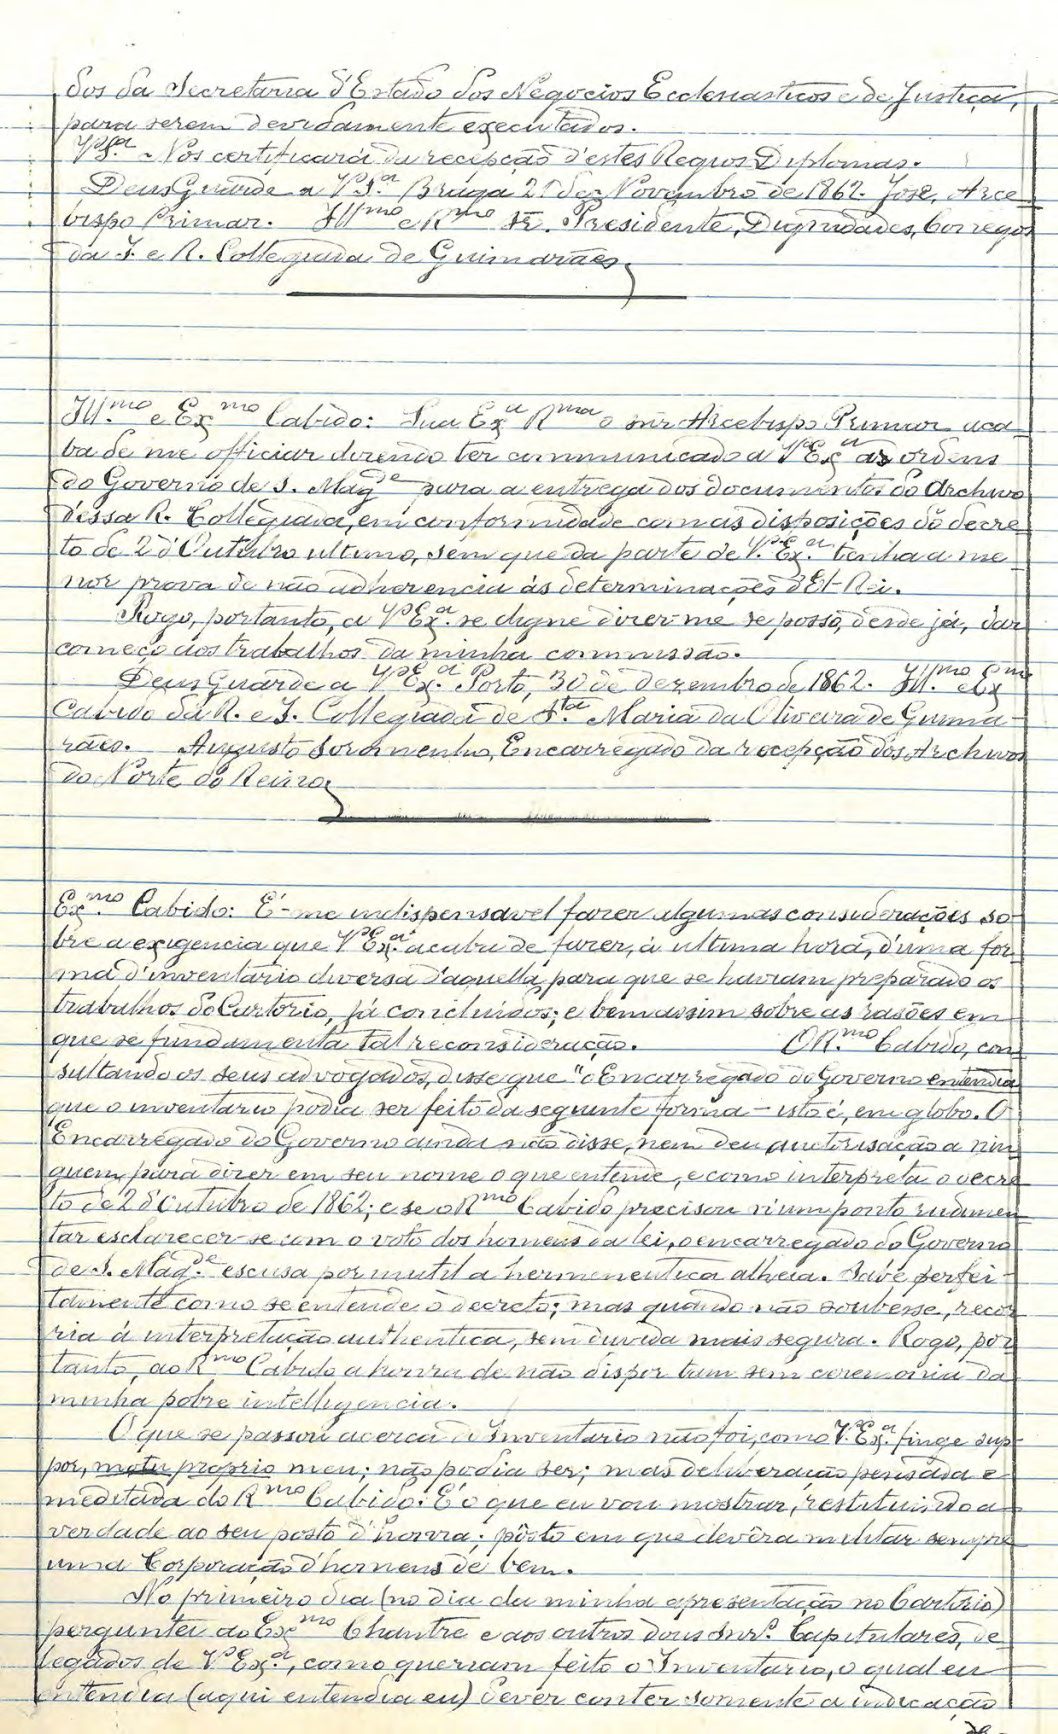 dos da Secretaria d'Estado dos Negocios Ecclesiasticos e de Justiça,
para serem devidamente executados.
V. S.ª Nos certificará da recepção d'estes Regios Diplomas.
Deus Guarde a V. S.ª Braga 21 de Novembro de 1862. José, Arce-
bispo Primaz. Ill.mo e R.mo Sr. Presidente, Dignidades, Conegos
da I. e R. Collegiada de Guimarães.
Ill.mo e Ex.mo Cabido: Sua Ex.ª R.ma o snr Arcebispo Primaz aca-
ba de me officiar dizendo ter communicado a V. Ex.ª as ordens
do Governo de S. Mag.de para a entrega dos documentos do Archivo
d'essa R. Collegiada, em conformidade com as disposições do decre-
to de 2 d'Outubro ultimo, sem que da parte de V. Ex.ª tenha a me-
nor prova de não adherencia ás determinações d'El-Rei.
Rogo, portanto, a V. Ex.ª se digne dizer-me se posso, desde já, dar
começo aos trabalhos da minha commissão.
Deus Guarde a V. Ex.ª Porto, 30 de dezembro de 1862. Ill.mo e Ex.mo
Cabido da R. e I. Collegiada de S.ta Maria da Oliveira de Guima-
rães. Augusto Soromenho, Encarregado da recepção dos Archivos
do Norte do Reino.
Ex.mo Cabido: É-me indispensavel fazer algumas considerações so-
bre a exigencia que V. Ex.ª acaba de fazer, á ultima hora, d'uma for-
ma d'inventario diversa d'aquella, para que se haviam preparado os
trabalhos do Cartorio, já concluidos; e bem assim sobre as rasões em
que se fundamenta tal reconsideração. O R.mo Cabido, con-
sultando os seus advogados, disse que "o Encarregado do Governo entendia
que o inventario podia ser feito da seguinte forma - isto é, em globo. O
Encarregado do Governo ainda não disse, nem deu auctorisação a nin-
guem, para dizer em seu nome o que entende, e como interpreta o decre-
to de 2 d'Outubro de 1862; e se o R.mo Cabido precisou n'um ponto rudimen-
tar esclarecer-se com o voto dos homens da lei, o encarregado do Governo
de S. Mag.de escusa por inutil a hermeneutica alheia. Sabe perfei-
tamente como se entende o decreto; mas quando não soubesse, recor-
ria á interpretação authentica, sem duvida mais segura. Rogo, por-
tanto, ao R.mo Cabido a honra de não dispor tam sem ceremonia da
minha pobre intelligencia.
O que se passou acerca do Inventario não foi, como V. Ex.ª finge sup-
por, motu proprio meu; não podia ser; mas deliberação pensada e
meditada do R.mo Cabido. É o que eu vou mostrar, restituindo a
verdade ao seu posto d'honra; pôsto em que devêra militar sempre
uma Corporação d'homens de bem.
No primeiro dia (no dia da minha apresentação no Cartorio)
perguntei ao Ex.mo Chantre e aos outros dous Snr.s Capitulares, de-
legados de V. Ex.ª, como queriam feito o Inventario, o qual eu
entendia (aqui entendia eu) dever conter somente a indicação